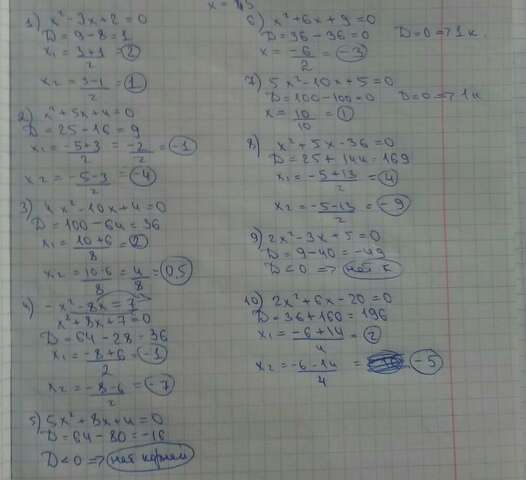 x = 45
1) x² - 3x + 2 = 0
D = 9 - 8 = 1
x1 = 3+1/2 = 2
x2 = 3-1/2 = 1
2) x² + 5x + 4 = 0
D = 25 - 16 = 9
x1 = -5+3/2 = -2/2 = -1
x2 = -5-3/2 = -4
3) 4x² - 10x + 4 = 0
D = 100 - 64 = 36
x1 = 10+6/8 = 2
x2 = 10-6/8 = 4/8 = 0,5
4) -x² - 8x = 7
x² + 8x + 7 = 0
D = 64 - 28 = 36
x1 = -8+6/2 = -1
x2 = -8-6/2 = -7
5) 5x² + 8x + 4 = 0
D = 64 - 80 = -16
D < 0 => нет корней
6) x² + 6x + 9 = 0
D = 36 - 36 = 0 D = 0 => 1 к.
x = -6/2 = -3
7) 5x² - 10x + 5 = 0
D = 100 - 100 = 0 D = 0 => 1 к
x = 10/10 = 1
8) x² + 5x - 36 = 0
D = 25 + 144 = 169
x1 = -5+13/2 = 4
x2 = -5-13/2 = -9
9) 2x² - 3x + 5 = 0
D = 9 - 40 = -49
D < 0 => нет к
10) 2x² + 6x - 20 = 0
D = 36 + 160 = 196
x1 = -6+14/4 = 2
x2 = -6-14/4 = -5